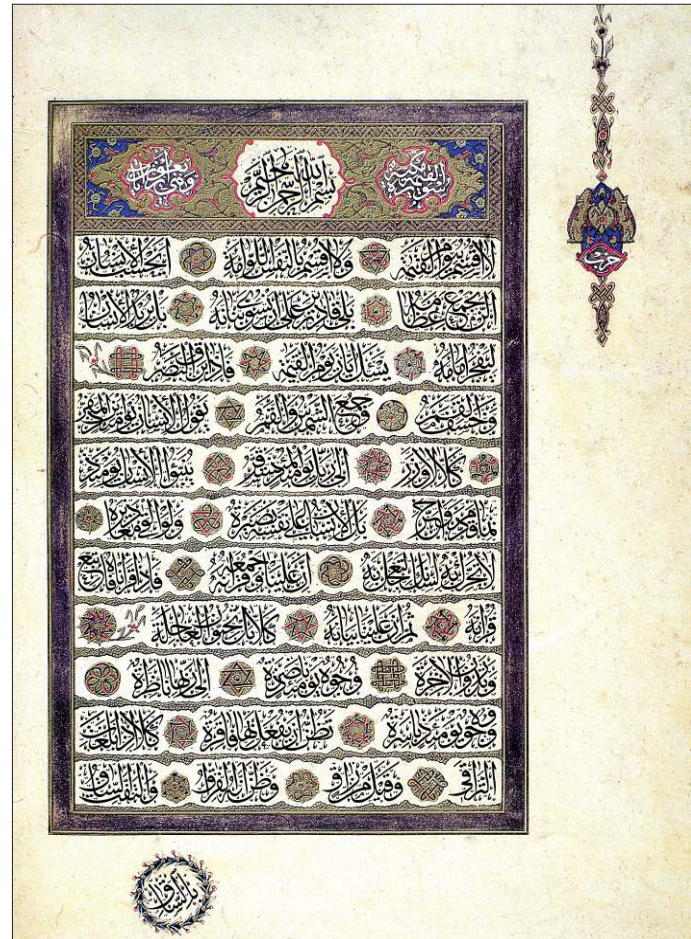 سورة القيمة مكية
بسم الله الرحمن الرحيم
حزب
لا اقسم بيوم القيمة ولا اقسم بالنفس اللوامة ايحسب الانسان
الن نجمع عظامه بلى قادرين على ان نسوى بنانه بل يريد الانسان
ليفجر امامه يسئل ايان يوم القيمة فاذا برق البصر
وخسف القمر وجمع الشمس والقمر يقول الانسان يومئذ اين المفر
كلا لا وزر الى ربك يومئذ المستقر ينبؤا الانسان يومئذ
بما قدم واخر بل الانسان على نفسه بصيرة ولو القى معاذيره
لا تحرك به لسانك لتعجل به ان علينا جمعه وقرانه فاذا قراناه فاتبع
قرانه ثم ان علينا بيانه كلا بل تحبون العاجلة
وتذرون الاخرة وجوه يومئذ ناضرة الى ربها ناظرة
ووجوه يومئذ باسرة تظن ان يفعل بها فاقرة كلا اذا بلغت
التراقى وقيل من راق وظن انه الفراق والتفت الساق
بالساق